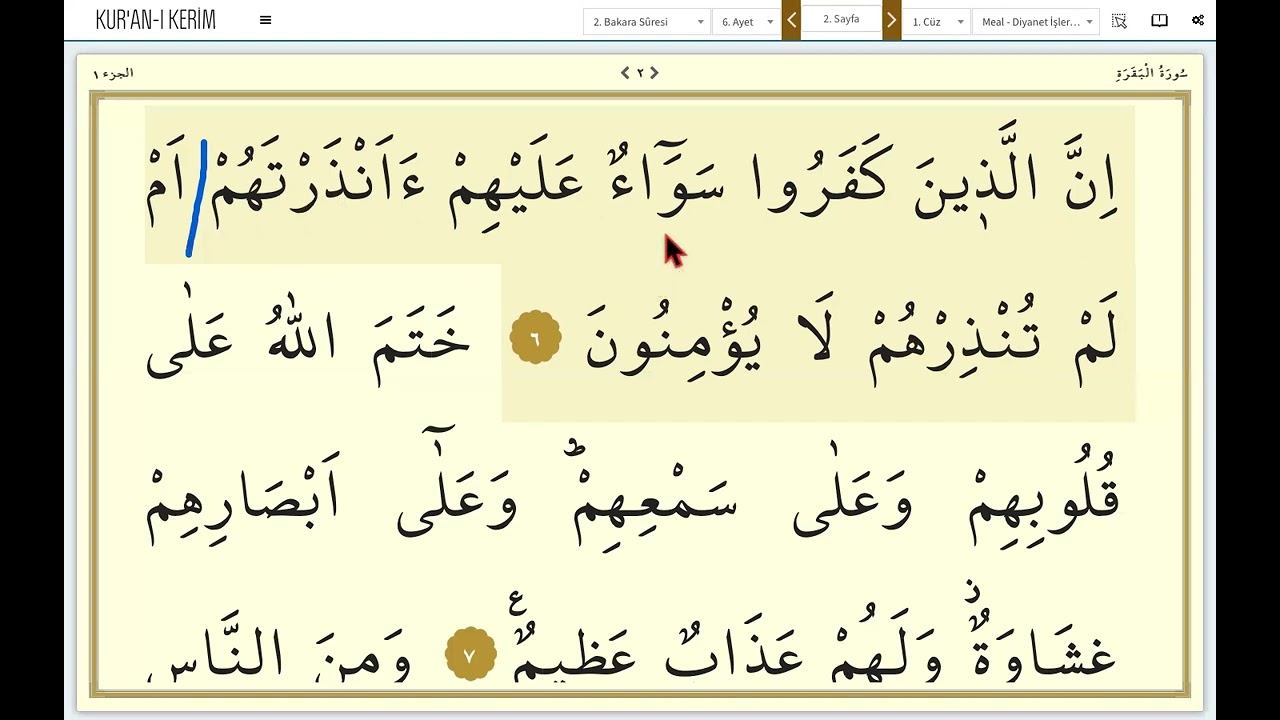 KUR'AN-I KERİM
2. Bakara Sûresi
6. Ayet
2. Sayfa
1. Cüz
Meal - Diyanet İşler...
سُورَةُ الْبَقَرَةِ
٢
الجزء ١
اِنَّ الَّذ۪ينَ كَفَرُوا سَوَٓاءٌ عَلَيْهِمْ ءَاَنْذَرْتَهُمْ اَمْ
لَمْ تُنْذِرْهُمْ لَا يُؤْمِنُونَ ٦ خَتَمَ اللّٰهُ عَلٰى
قُلُوبِهِمْ وَعَلٰى سَمْعِهِمْۜ وَعَلٰٓى اَبْصَارِهِمْ
غِشَاوَةٌۘ وَلَهُمْ عَذَابٌ عَظ۪يمٌ۟ ٧ وَمِنَ النَّاسِ